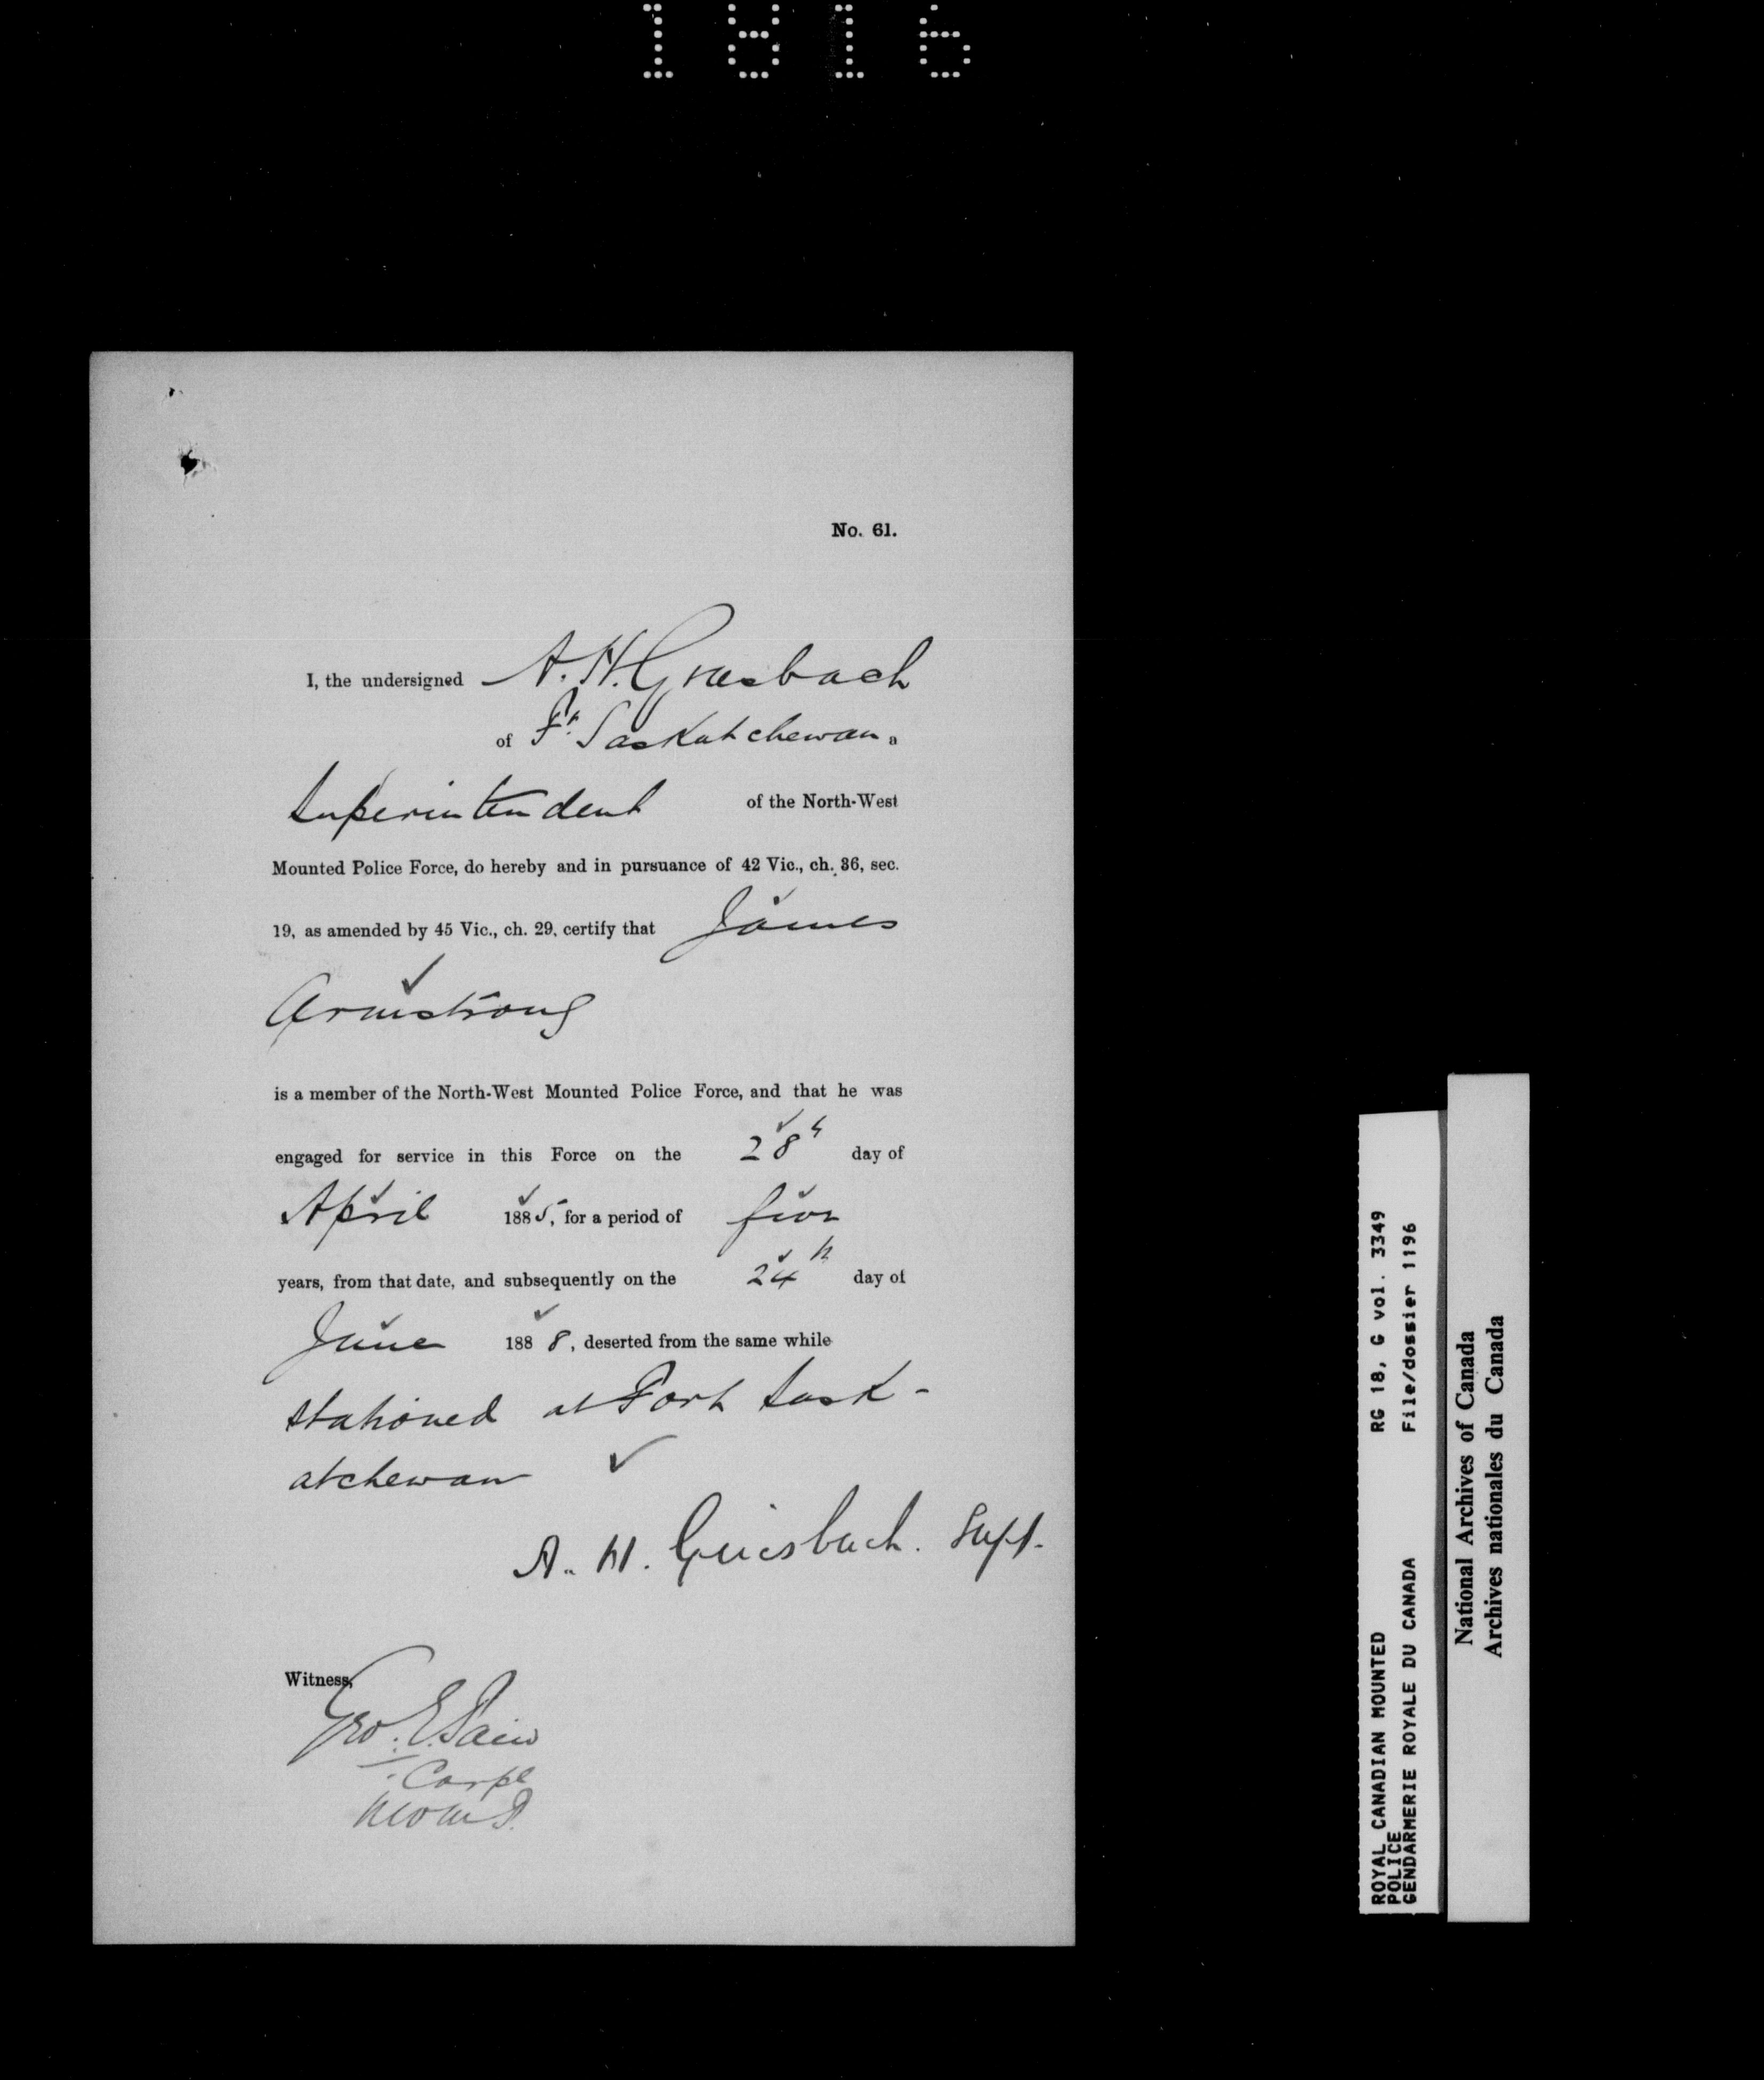 1816
No. 61.
I, the undersigned A. H. Griesbach
of Ft. Saskatchewan a
Superintendent of the North-West
Mounted Police Force, do hereby and in pursuance of 42 Vic., ch. 36, sec.
19, as amended by 45 Vic., ch. 29, certify that James
Armstrong
is a member of the North-West Mounted Police Force, and that he was
engaged for service in this Force on the 28th day of
April 1885, for a period of five
years, from that date, and subsequently on the 24th day of
June 1888, deserted from the same while
stationed at Fort Sask-
atchewan
A. H. Griesbach. Supt.
Witness,
Geo. E.
Corpl
N.W.M.P.
ROYAL CANADIAN MOUNTED
POLICE
GENDARMERIE ROYALE DU CANADA
RG 18, G vol. 3349
File/dossier 1196
National Archives of Canada
Archives nationales du Canada